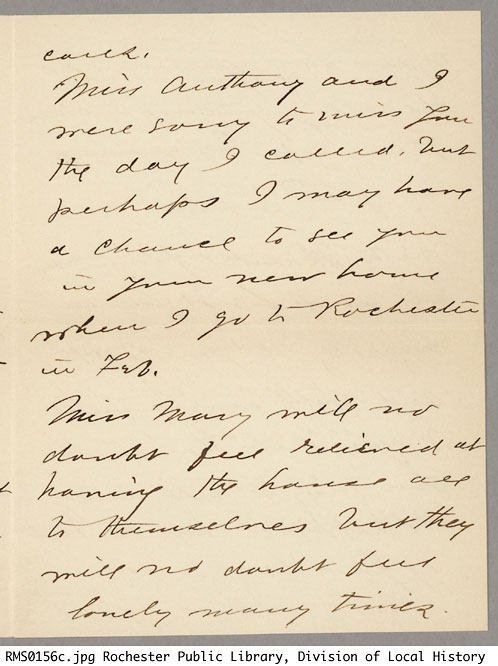 Miss Anthony and I
were sorry to miss you
the day I called. but
perhaps I may have
a chance to see you
in your new home
when I go to Rochester
in Feb.
Miss Mary will no
doubt feel relieved at
having the house all
to themselves but they
will no doubt feel
lonely many times.
RMS0156c.jpg Rochester Public Library, Division of Local History